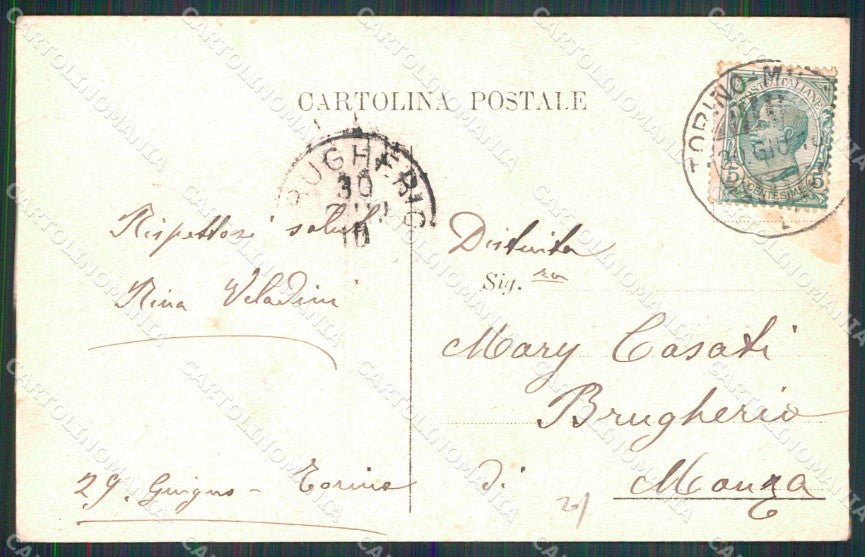 CARTOLINA POSTALE
TORINO
POSTE ITALIANE
GIU
5 CENTESIMI 5
BRUGHERIO
30
10
Rispettosi saluti
Nina Veladini
29. Giugno - Torino
Distinta
Sig.ra
Mary Casati
Brugherio
di Monza
20/
CARTOLINOMANIA